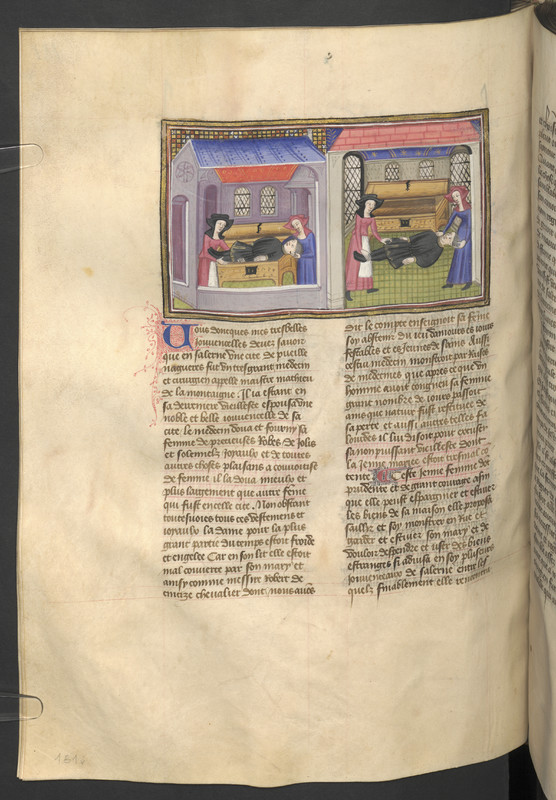 Vous doncques mes tresbelles
Jouuencelles deuez sauoir
que en salerne vne cite de pueille
nagueres fut vn tresgrant medecin
et cirurgien appelle maistre mathieu
de la montaigne. Il ia estant en
sa derreniere vieillesse espousa vne
noble et belle iouuencelle de sa
cite le medecin doua et fourny sa
femme de precieuses Robes de Jolis
et solemnelz Joyaulx et de toutes
autres choses plaisans a couuoitise
de femme il la doua mieulx et
plus largement que autre feme
qui fust en celle cite. Non obstant
toutesuoies tous ces vestemens et
Joyaulx la dame pour la plus
grant partie du temps estoit froide
et engelee Car en son lit elle estoit
mal couuerte par son mary et
ainsy comme messire Robert de
chevalier dont nous auõs
dit le compte enseignoit sa feme
soy abstenir du ieu damours es iours
festables et es Jeunes de sains Aussi
cestui medecin monstroit par Rusez
de medecines que apres ce que vn
homme auoit congneu sa femme
grant nombre de iours passoit
ains que nature fust restituee de
sa perte et aussi autres belles fa
lourdes il lui disoit pour excuser
sa non puissant vieillesse dont
la Jeune mariee estoit tresmal co
tente Ceste Jeune femme
prudente et de grant courage afin
que elle peust espargnier et estuier
les biens de sa maison elle proposa
saillir et soy monstrer en Rue et
garder et estuier son mary et de
vouloir despendre et vser des biens
estranges si aduisa en soy plusieurs
Jouuenceaux de salerne entre les
quelz finablement elle rencontra
181.